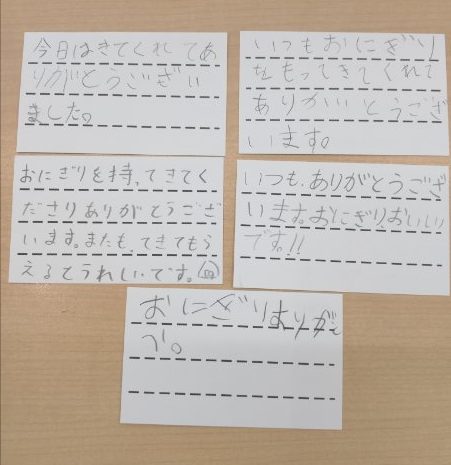 今日はきてくれてあ
りがとうござい
ました。
いつもおにぎり
をもってきてくれて
ありがとうござ
います。
おにぎりを持ってきてく
ださりありがとうござ
います。またもってきてもら
えるとうれしいです。
いつもありがとうござ
います。おにぎりおいしい
です!!
おにぎりありがと